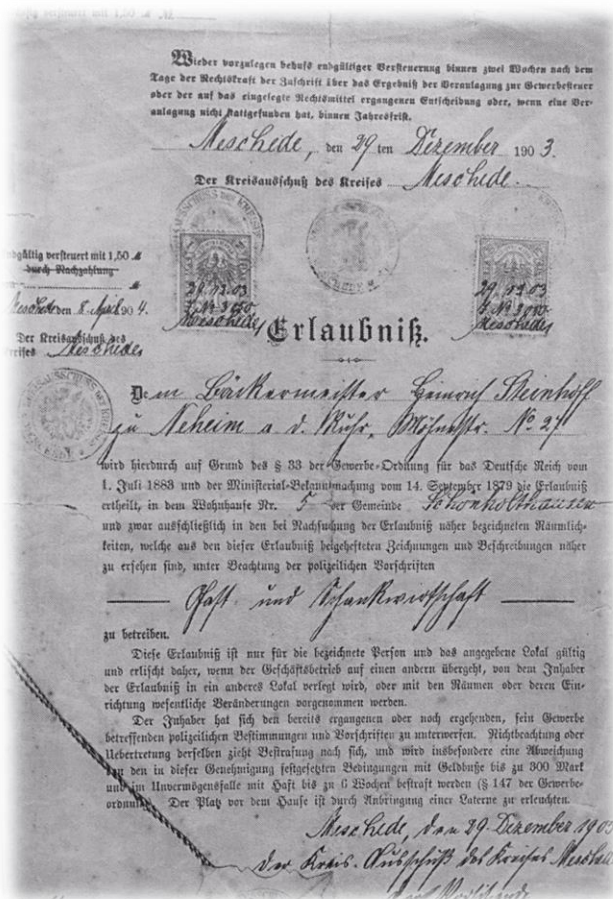 Wieder vorzulegen behufs endgültiger Versteuerung binnen zwei Wochen nach dem
Tage der Rechtskraft der Zuschrift über das Ergebniß der Veranlagung zur Gewerbesteuer
oder der auf das eingelegte Rechtsmittel ergangenen Entscheidung oder, wenn eine Ver-
anlagung nicht stattgefunden hat, binnen Jahresfrist.
Meschede, den 29 ten Dezember 1903.
Der Kreisausschuß des Kreises Meschede.
endgültig versteuert mit 1,50 M
durch Nachzahlung
Meschede den 8. April 1904.
Der Kreisausschuß des
Kreises Meschede
29.12.03
Meschede
29.12.03
Meschede
Erlaubniß.
Dem Bäckermeister Heinrich Steinhoff
zu Neheim a. d. Ruhr, Möhnestr. No 27
wird hierdurch auf Grund des § 33 der Gewerbe-Ordnung für das Deutsche Reich vom
1. Juli 1883 und der Ministerial-Bekanntmachung vom 14. September 1879 die Erlaubniß
ertheilt, in dem Wohnhause Nr. 5 der Gemeinde Schönholthausen
und zwar ausschließlich in den bei Nachsuchung der Erlaubniß näher bezeichneten Räumlich-
keiten, welche aus den dieser Erlaubniß beigehefteten Zeichnungen und Beschreibungen näher
zu ersehen sind, unter Beachtung der polizeilichen Vorschriften
Gast- und Schankwirtschaft
zu betreiben.
Diese Erlaubniß ist nur für die bezeichnete Person und das angegebene Lokal gültig
und erlischt daher, wenn der Geschäftsbetrieb auf einen andern übergeht, von dem Inhaber
der Erlaubniß in ein anderes Lokal verlegt wird, oder mit den Räumen oder deren Ein-
richtung wesentliche Veränderungen vorgenommen werden.
Der Inhaber hat sich den bereits ergangenen oder noch ergehenden, sein Gewerbe
betreffenden polizeilichen Bestimmungen und Vorschriften zu unterwerfen. Nichtbeachtung oder
Uebertretung derselben zieht Bestrafung nach sich, und wird insbesondere eine Abweichung
von den in dieser Genehmigung festgesetzten Bedingungen mit Geldbuße bis zu 300 Mark
und im Unvermögensfalle mit Haft bis zu 6 Wochen bestraft werden (§ 147 der Gewerbe-
ordnung). Der Platz vor dem Hause ist durch Anbringung einer Laterne zu erleuchten.
Meschede, den 29. Dezember 1903
Der Kreis-Ausschuß des Kreises Meschede
Der Vorsitzende